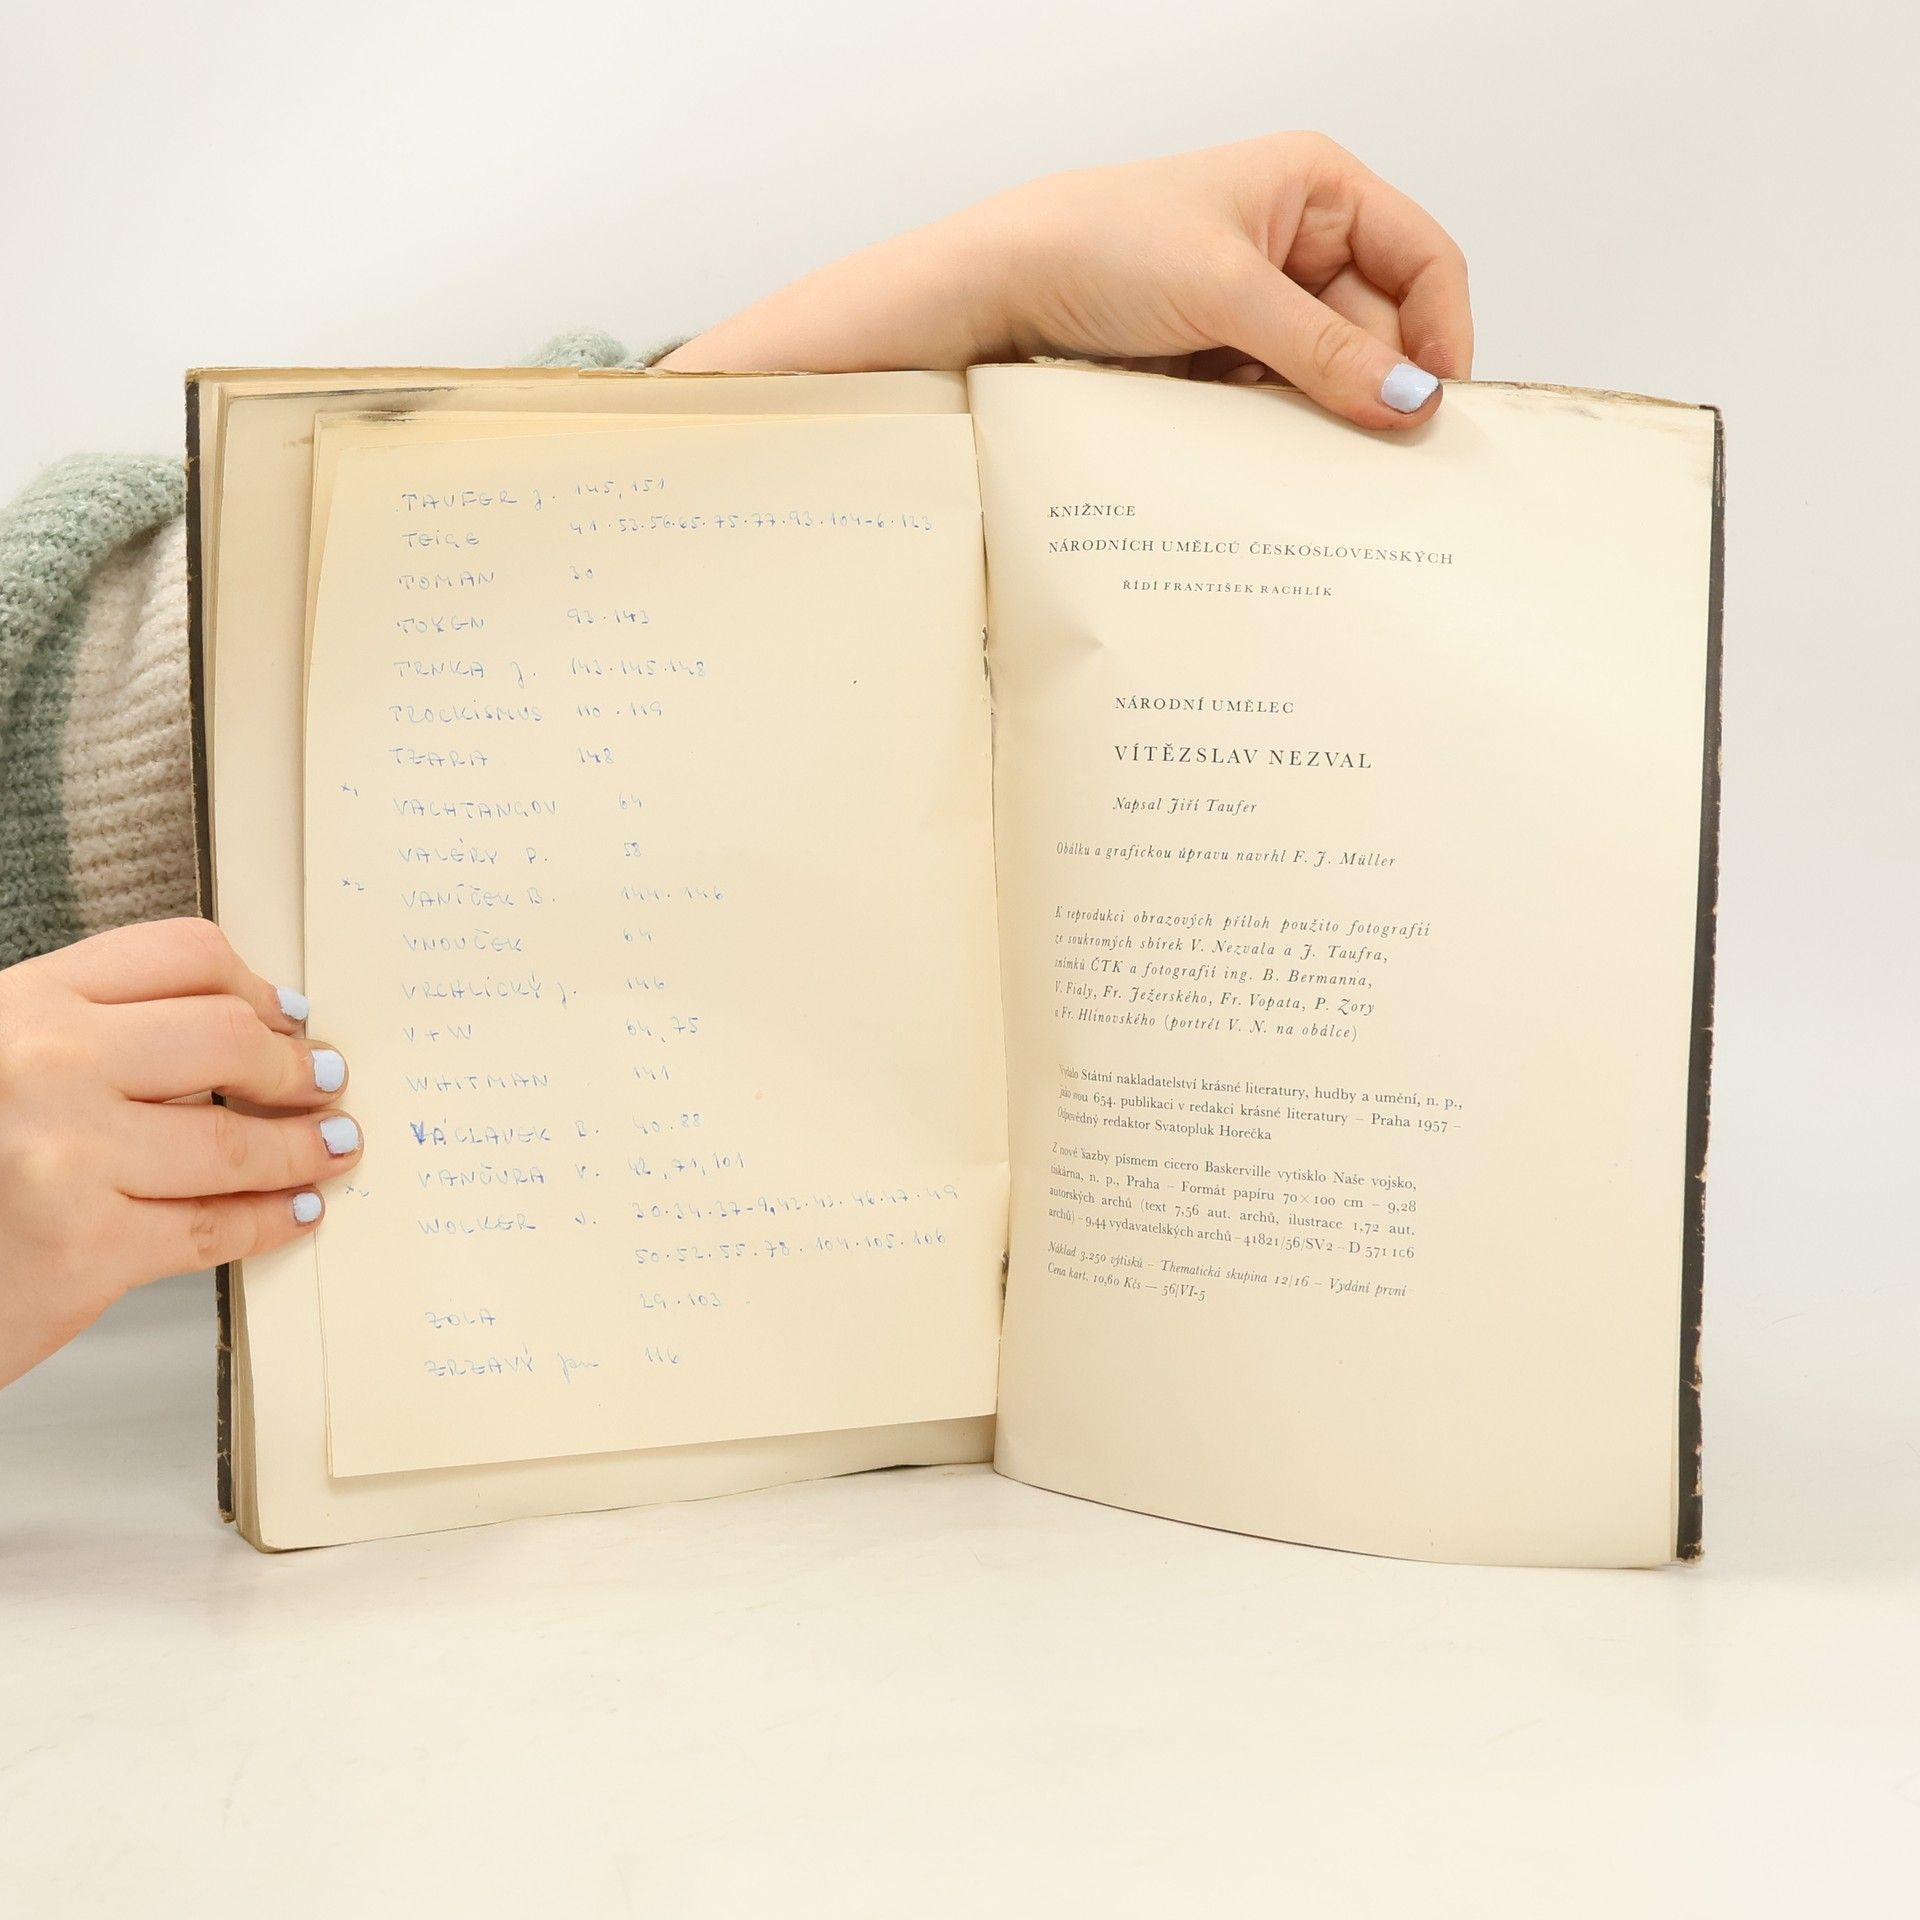 TAUFER J. 145, 151
TEIGE 41·53·56·65·75·77·93·104-6·123
TOMAN 30
TOYEN 93·143
TRNKA J. 143·145·148
TROCKISMUS 110·119
TZARA 148
x1
VACHTANGOV 64
VALÉRY P. 58
x2
VANÍČEK B. 144·146
VNOUČEK 64
VRCHLICKÝ J. 146
V + W 64, 75
WHITMAN 141
VÁCLAVEK B. 40·88
VANČURA V. 42, 71, 101
x2
WOLKER J. 30·34·37-9,42·43·46·47·49
50·52·55·78·104·105·106
ZOLA 29·103
ZRZAVÝ Jan 116
KNIŽNICE
NÁRODNÍCH UMĚLCŮ ČESKOSLOVENSKÝCH
ŘÍDÍ FRANTIŠEK RACHLÍK
NÁRODNÍ UMĚLEC
VÍTĚZSLAV NEZVAL
Napsal Jiří Taufer
Obálku a grafickou úpravu navrhl F. J. Müller
K reprodukci obrazových příloh použito fotografií
ze soukromých sbírek V. Nezvala a J. Taufra,
snímků ČTK a fotografií ing. B. Bermanna,
V. Fialy, Fr. Ježerského, Fr. Vopata, P. Zory
a Fr. Hlínovského (portrét V. N. na obálce)
Vydalo Státní nakladatelství krásné literatury, hudby a umění, n. p.,
jako svou 654. publikaci v redakci krásné literatury – Praha 1957 –
Odpovědný redaktor Svatopluk Horečka
Z nové sazby písmem cicero Baskerville vytisklo Naše vojsko,
tiskárna, n. p., Praha – Formát papíru 70×100 cm – 9,28
autorských archů (text 7,56 aut. archů, ilustrace 1,72 aut.
archů) – 9,44 vydavatelských archů – 41821/56/SV2 – D 571 106
Náklad 3.250 výtisků – Thematická skupina 12/16 – Vydání první
Cena kart. 10,60 Kčs — 56/VI-5